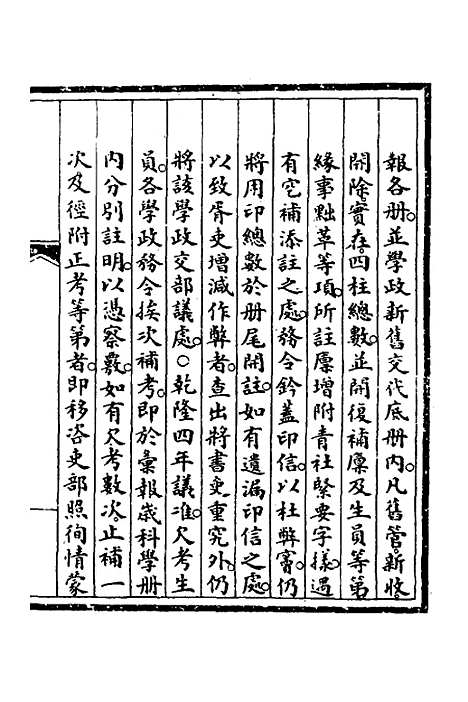 報各册。並學政新舊交代底册内。凡舊管。新收。
開除。實在。四柱總數。並開復補廩及生員等第
緣事黜革等項。所註廩增附青社緊要字様。遇
有空補添註之處。務令鈐蓋印信。以杜弊竇。仍
將用印總數於册尾開註。如有遺漏印信之處。
以致胥吏增減作弊者。查出將書吏重究外。仍
將該學政交部議處。○乾隆四年議准。欠考生
員。各學政務令挨次補考。即於彙報歲科學册
内分别註明。以憑察覈。如有欠考數次。止補一
次及徑附正考等第者。即移咨吏部照徇情蒙